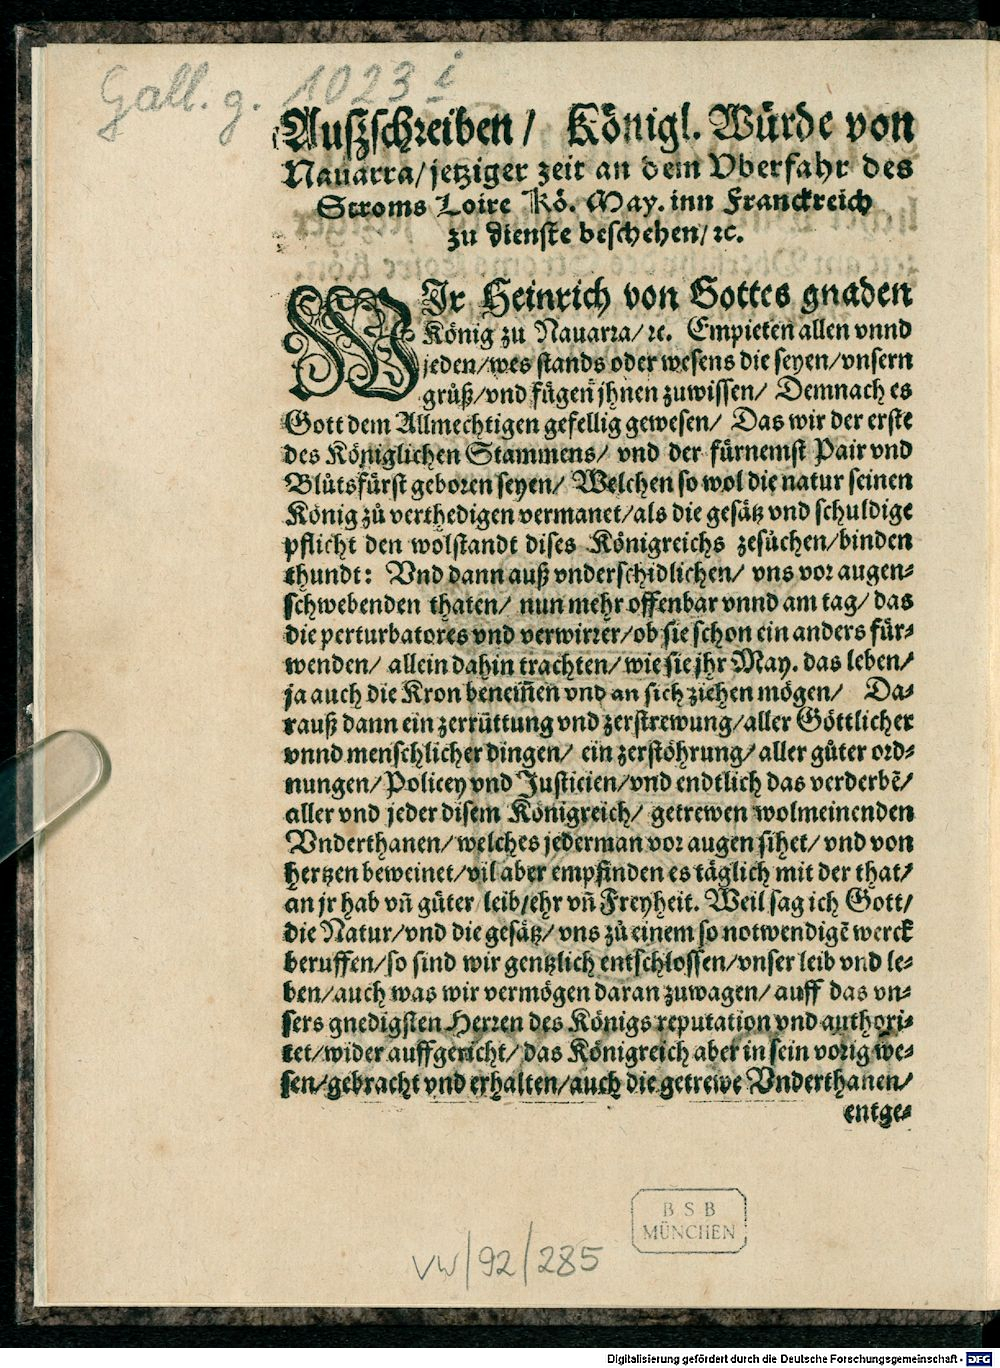 Gall. g. 1023 i
Auszschreiben/ Königl. Würde von
Nauarra/jetziger zeit an dem Vberfahr des
Stroms Loire Kö. May. inn Franckreich
zu dienste beschehen/ꝛc.
WIr Heinrich von Gottes gnaden
König zu Nauarra/ꝛc. Empieten allen vnnd
jeden/wes stands oder wesens die seyen/vnsern
grůß/vnd fügen jhnen zuwissen/ Demnach es
Gott dem Allmechtigen gefellig gewesen/ Das wir der erste
des Königlichen Stammens/ vnd der fürnemst Pair vnd
Blůtsfürst geboren seyen/ Welchen so wol die natur seinen
König zů verthedigen vermanet/als die gesätz vnd schuldige
pflicht den wolstandt dises Königreichs zesůchen/binden
thundt: Vnd dann auß vnderschidlichen/ vns vor augen-
schwebenden thaten/ nun mehr offenbar vnnd am tag/ das
die perturbatores vnd verwirrer/ob sie schon ein anders für-
wenden/ allein dahin trachten/wie sie jhr May. das leben/
ja auch die Kron benem̃en vnd an sich ziehen mögen/ Da-
rauß dann ein zerrüttung vnd zerstrewung/aller Göttlicher
vnnd menschlicher dingen/ ein zerstöhrung/aller gůter ord-
nungen/Policey vnd Justicien/vnd endtlich das verderbẽ/
aller vnd jeder disem Königreich/ getrewen wolmeinenden
Vnderthanen/welches jederman vor augen sihet/ vnd von
hertzen beweinet/vil aber empfinden es täglich mit der that/
an jr hab vñ gůter leib/ehr vñ Freyheit. Weil sag ich Gott/
die Natur/vnd die gesätz/ vns zů einem so notwendigẽ werck
beruffen/so sind wir gentzlich entschlossen/vnser leib vnd le-
ben/auch was wir vermögen daran zuwagen/ auff das vn-
sers gnedigsten Herren des Königs reputation vnd authori-
tet/wider auffgericht/das Königreich aber in sein vorig we-
sen/gebracht vnd erhalten/auch die getrewe Vnderthanen/
entge-
BSB
MÜNCHEN
VW/92/285
Digitalisierung gefördert durch die Deutsche Forschungsgemeinschaft - DFG